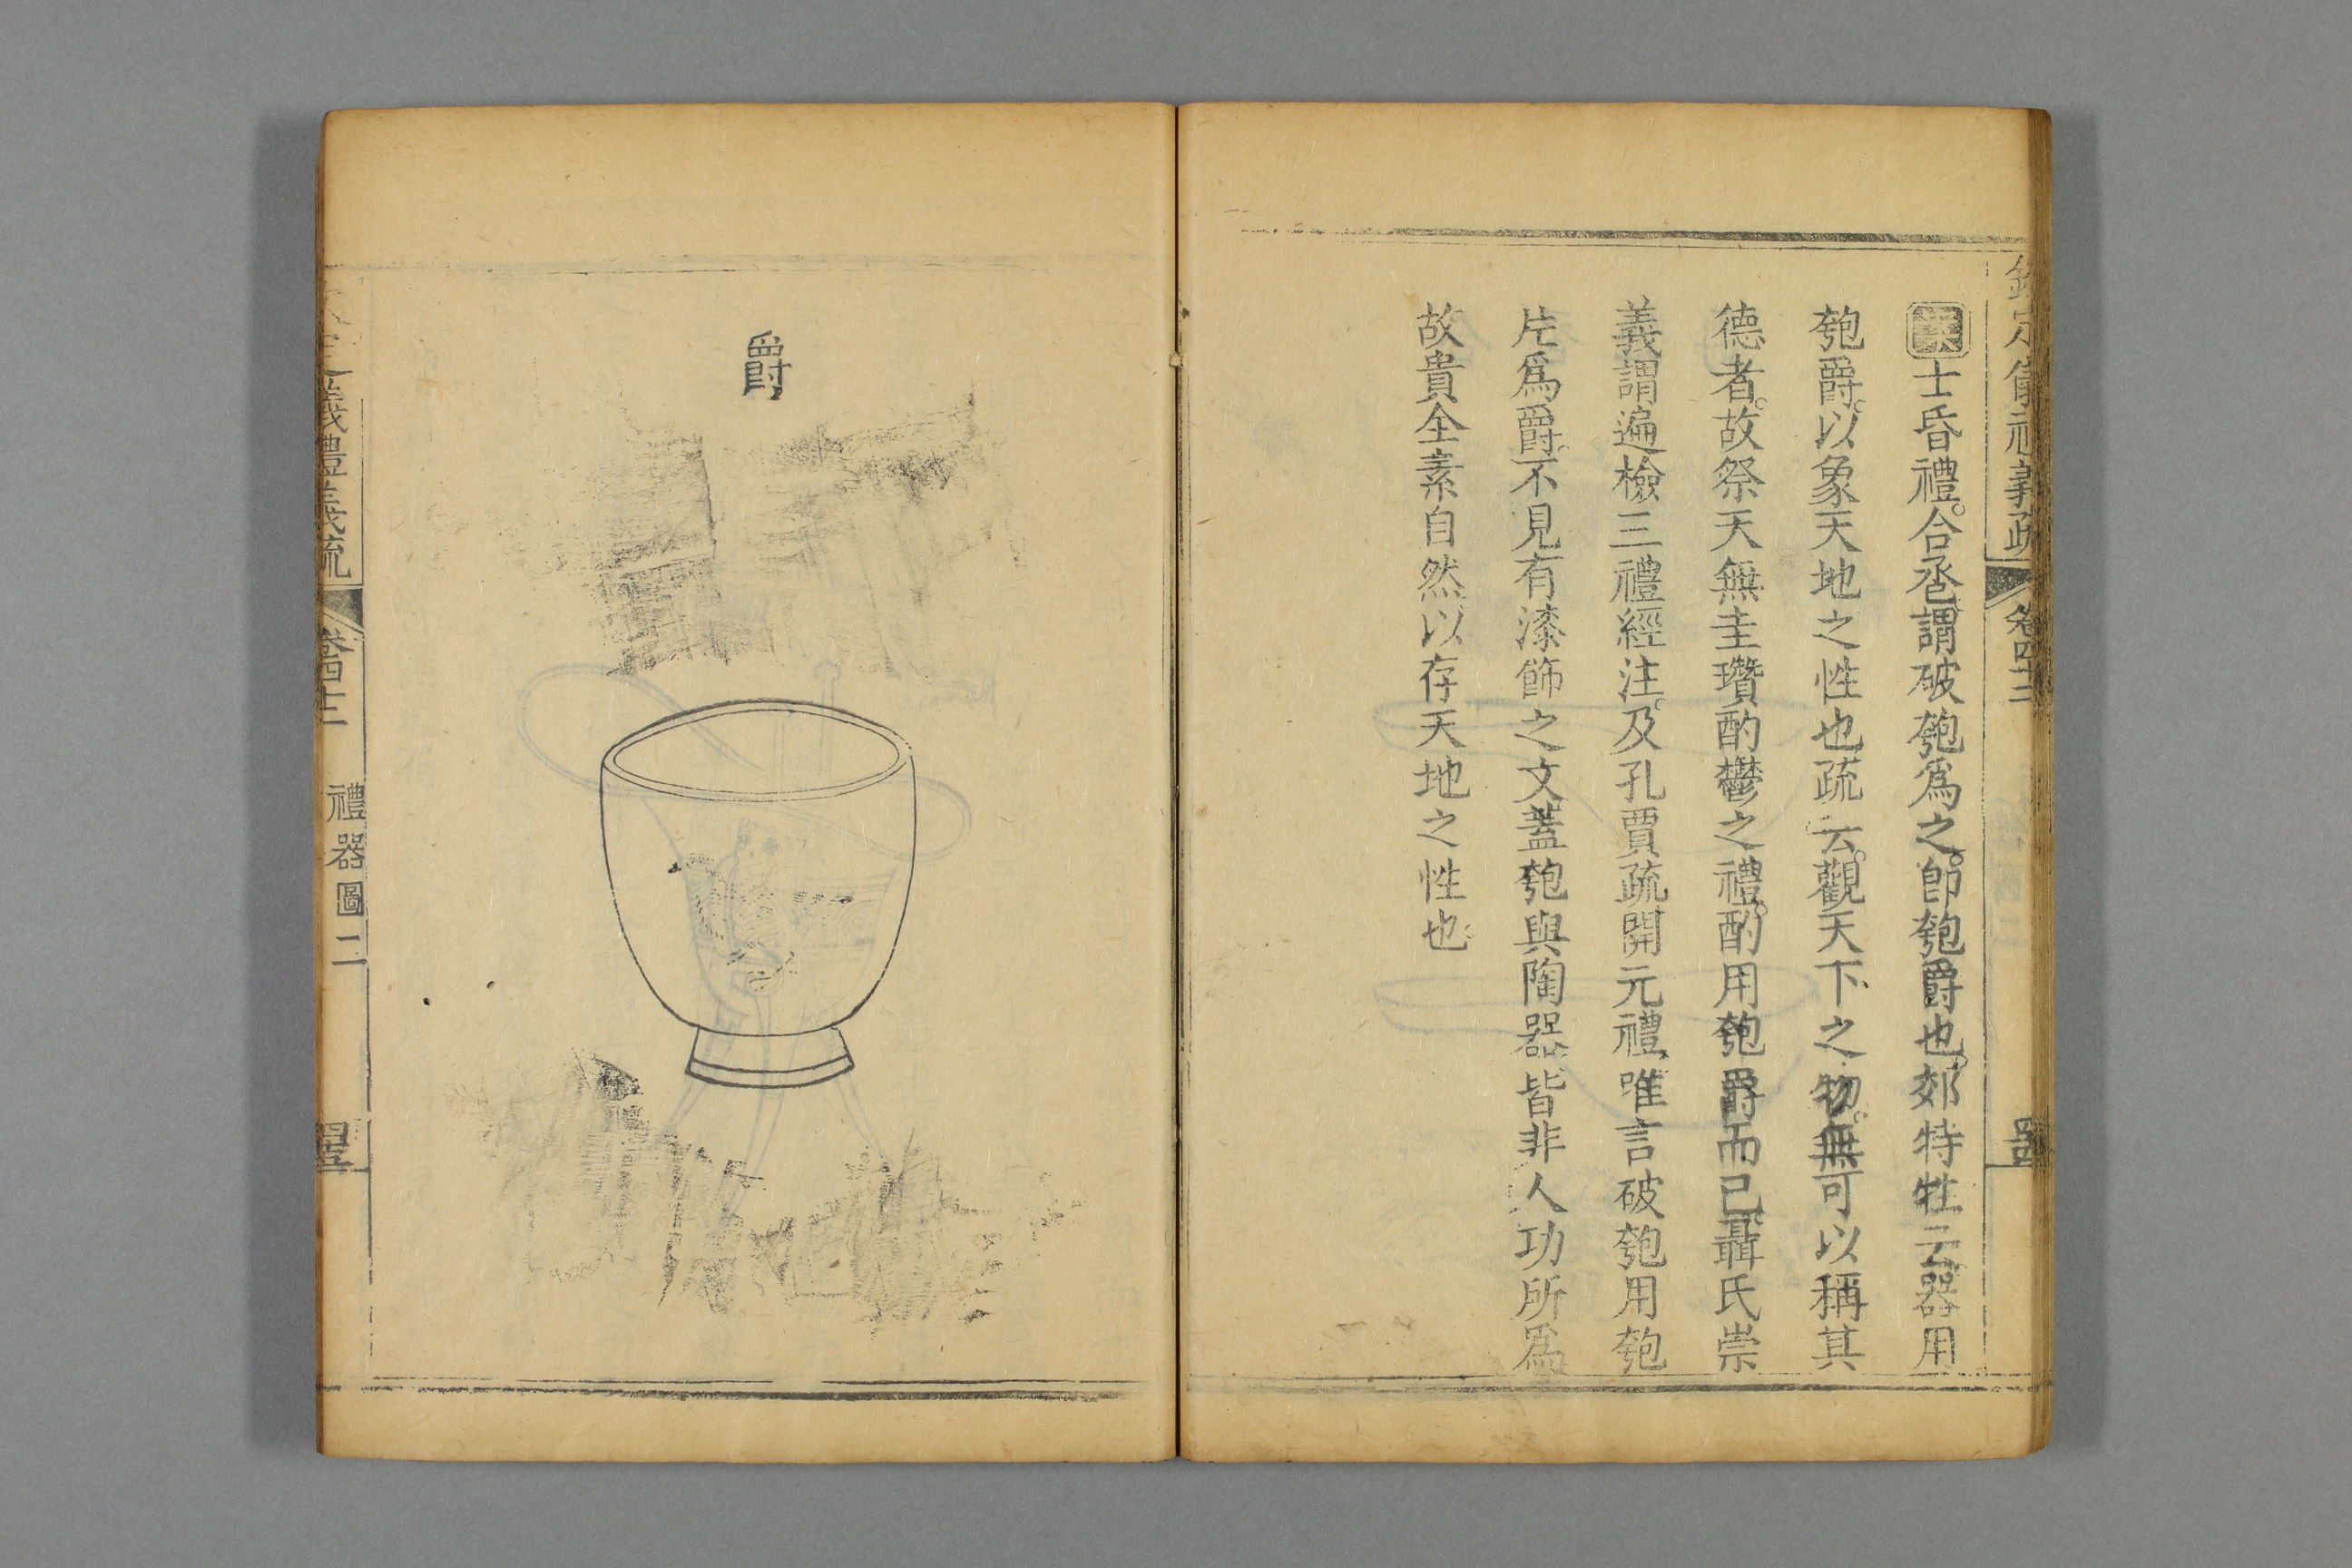 欽定儀禮義疏 卷四十三
案士昏禮。合巹謂破匏爲之。卽匏爵也。郊特牲云器用
匏爵。以象天地之性也疏云。觀天下之物。無可以稱其
德者。故祭天無圭瓚酌鬱之禮。酌用匏爵而已聶氏崇
義謂遍檢三禮經注。及孔賈疏開元禮、唯言破匏用匏
片爲爵。不見有漆飾之文蓋匏與陶器皆非人功所爲
故貴全素自然以存天地之性也。
爵
欽定儀禮義疏 卷四十三 禮器圖二